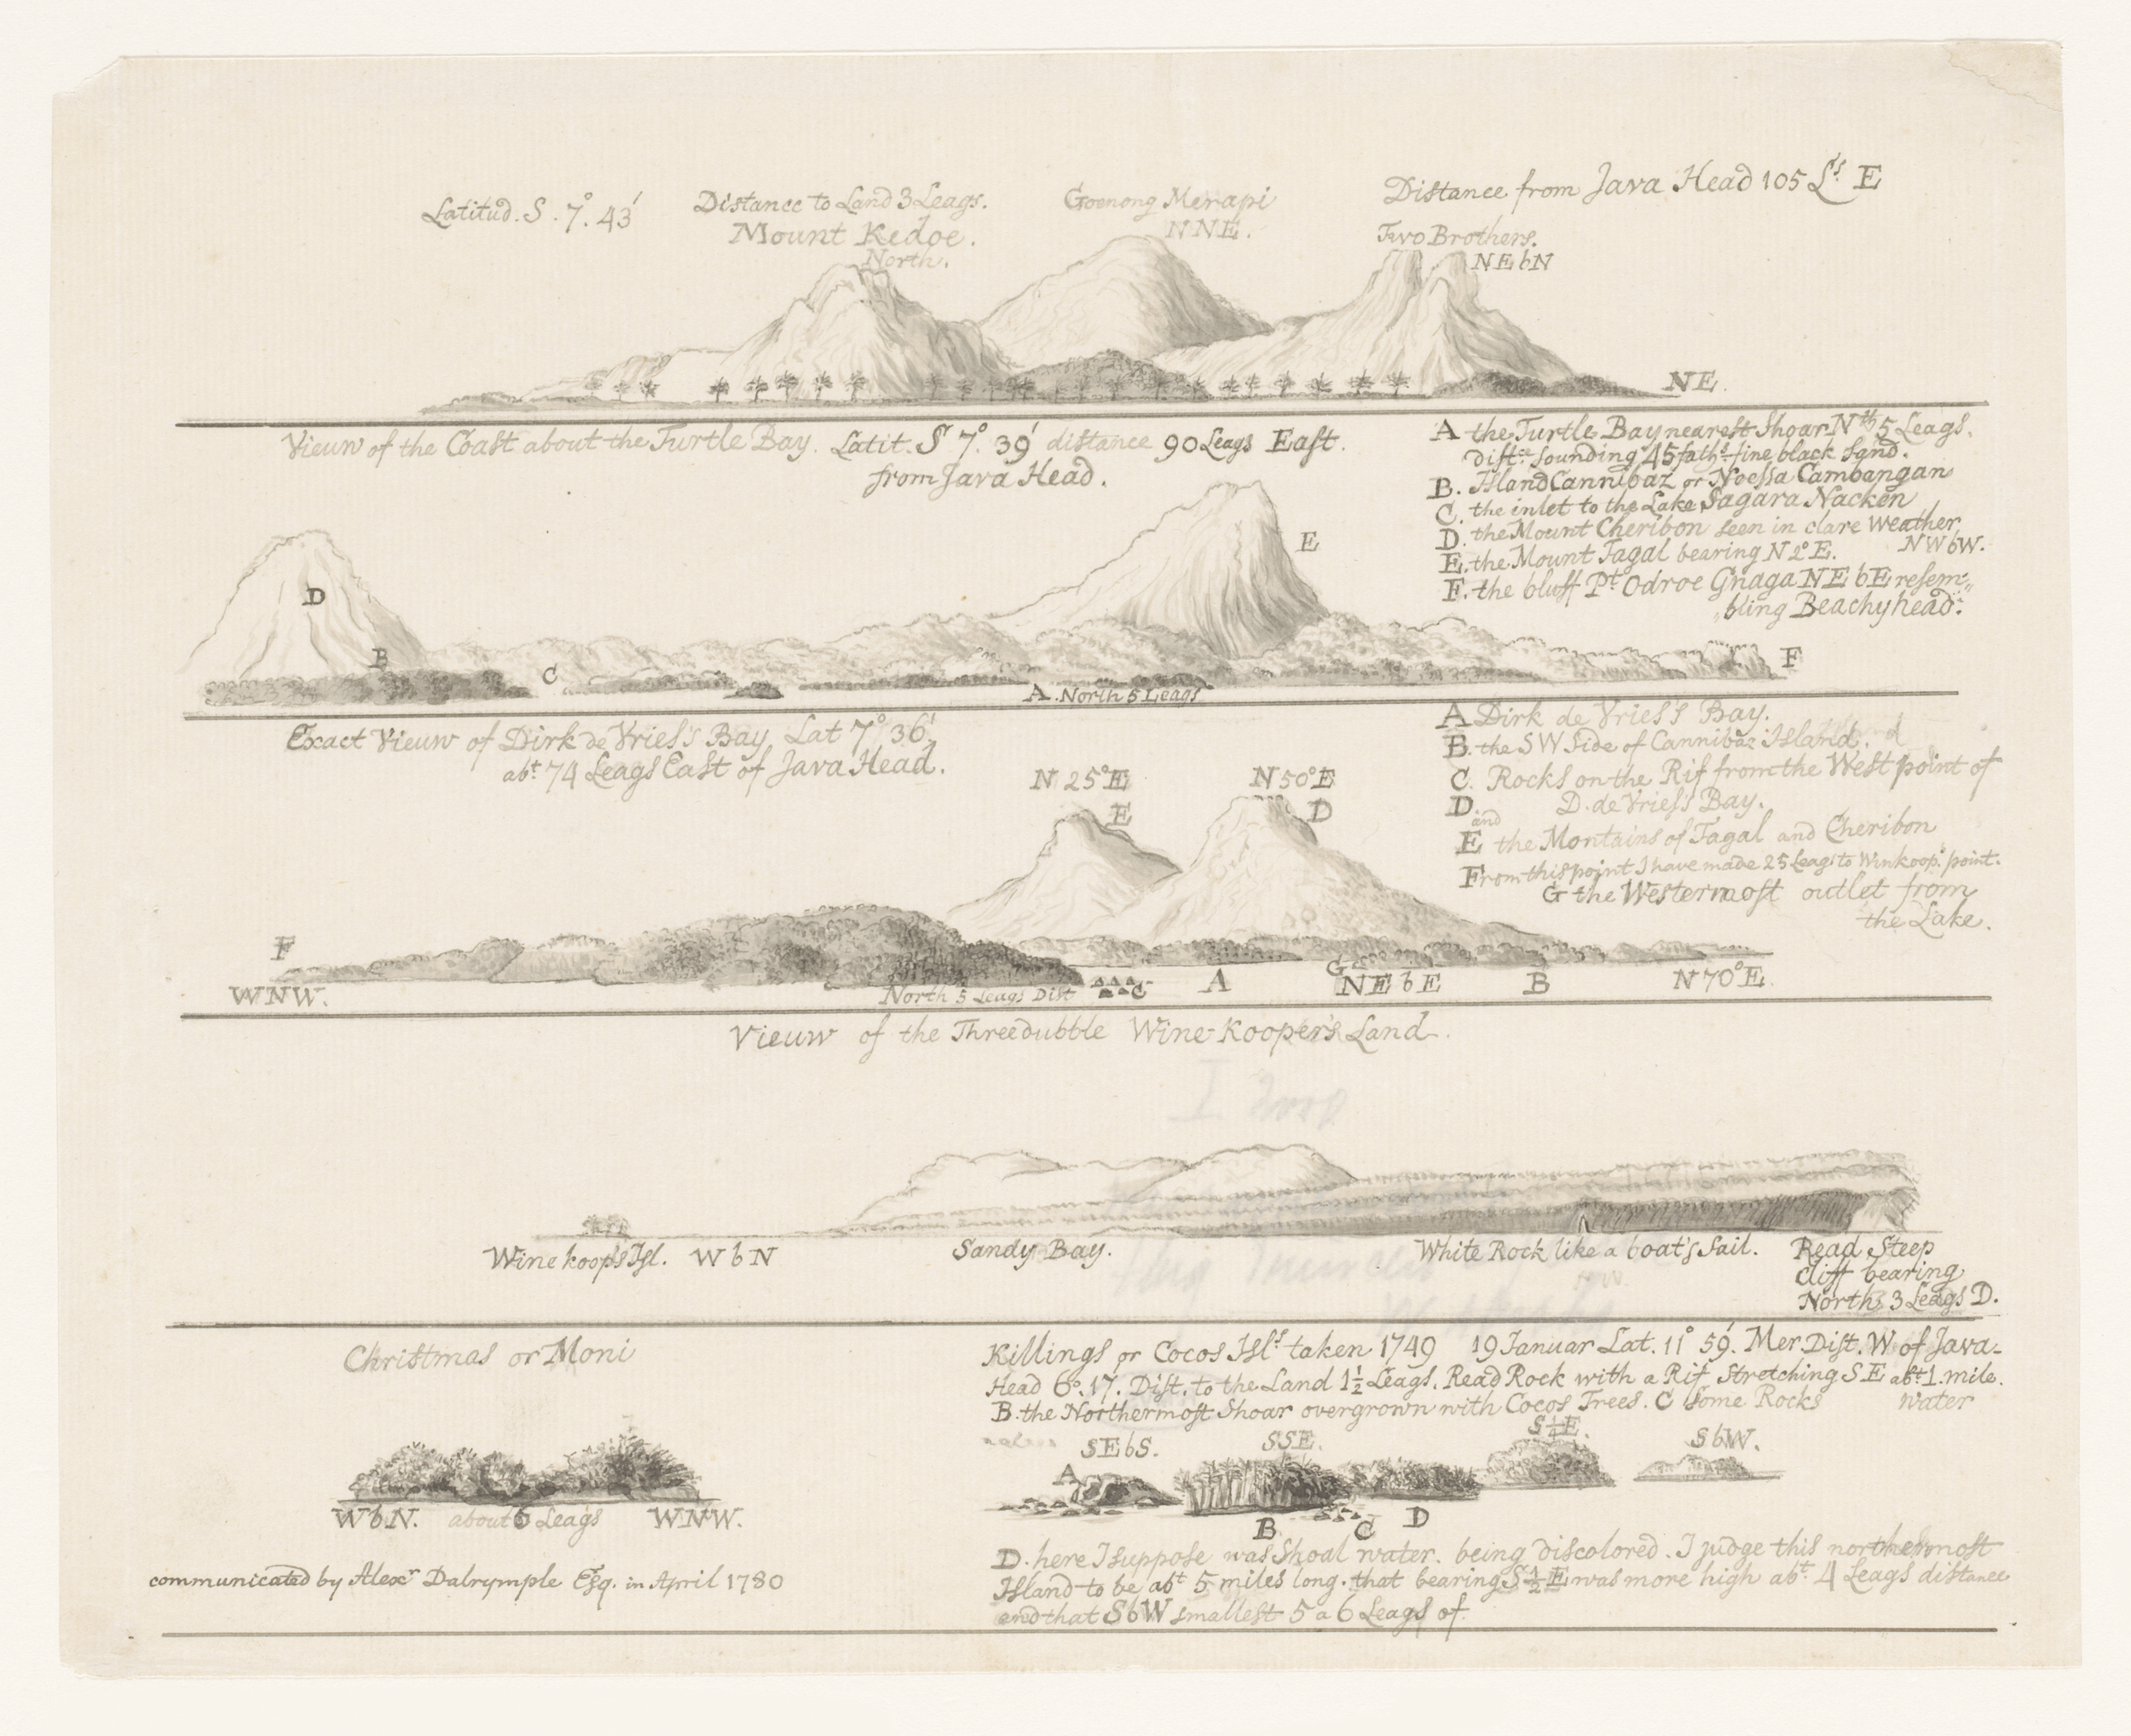 Latitud. S. 7°. 43'
Distance to Land 3 Leags.
Mount Kedoe.
North.
Goenong Merapi
NNE.
Distance from Java Head 105 Ls. E
Two Brothers.
NEbN
NE.
Vieuw of the Coast about the Turtle Bay. Latit. S 7°. 39' distance 90 Leags East.
from Java Head.
A the Turtle Bay nearest Shoar Nth 5 Leags.
distce. sounding 45 fath. fine black sand.
B. Island Cannibaz or Noessa Cambangan
C. the inlet to the Lake Sagara Nacken
D. the Mount Cheribon seen in clare weather
NWbW.
E. the Mount Tagal bearing N 2° E.
F. the bluff Pt. Odroe Gnaga NEbE resem„
„bling Beachyhead.
D
E
B
C
F
A. North 5 Leags
Exact Vieuw of Dirk de Vries's Bay Lat 7° 36'
abt. 74 Leags East of Java Head.
A Dirk de Vries's Bay.
B. the SW Side of Cannibaz Island.
C. Rocks on the Rif from the West point of
D. de Vries's Bay.
D
and
E the Montains of Tagal and Cheribon
From this point I have made 25 Leags to Winkoop. point.
G the Westermost outlet from
the Lake.
N 25° E
E
N 50° E
D
F
WNW.
North 5 Leags Dist
C
A
G
NEbE
B
N 70° E.
Vieuw of the Threedubble Wine-Kooper's Land.
Wine koops Isl. WbN
Sandy Bay.
White Rock like a boat's Sail.
Read Steep
cliff bearing
North 3 Leags D.
Christmas or Moni
WbN. about 6 Leags WNW.
communicated by Alexr. Dalrymple Esq. in April 1780
Killings or Cocos Isls. taken 1749 19 Januar Lat. 11° 59'. Mer Dist. W of Java-
Head 6°. 17. Dist. to the Land 1½ Leags. Read Rock with a Rif Stretching SE abt. 1. mile.
B. the Northermost Shoar overgrown with Cocos Trees. C Some Rocks water
SEbS.
SSE.
S¼E.
SbW.
A
B
C
D
D. here I suppose was Shoal water. being discolored. I judge this northermost
Island to be abt. 5 miles long. that bearing S½E was more high abt. 4 Leags distance
and that SbW smallest 5 a 6 Leags of.